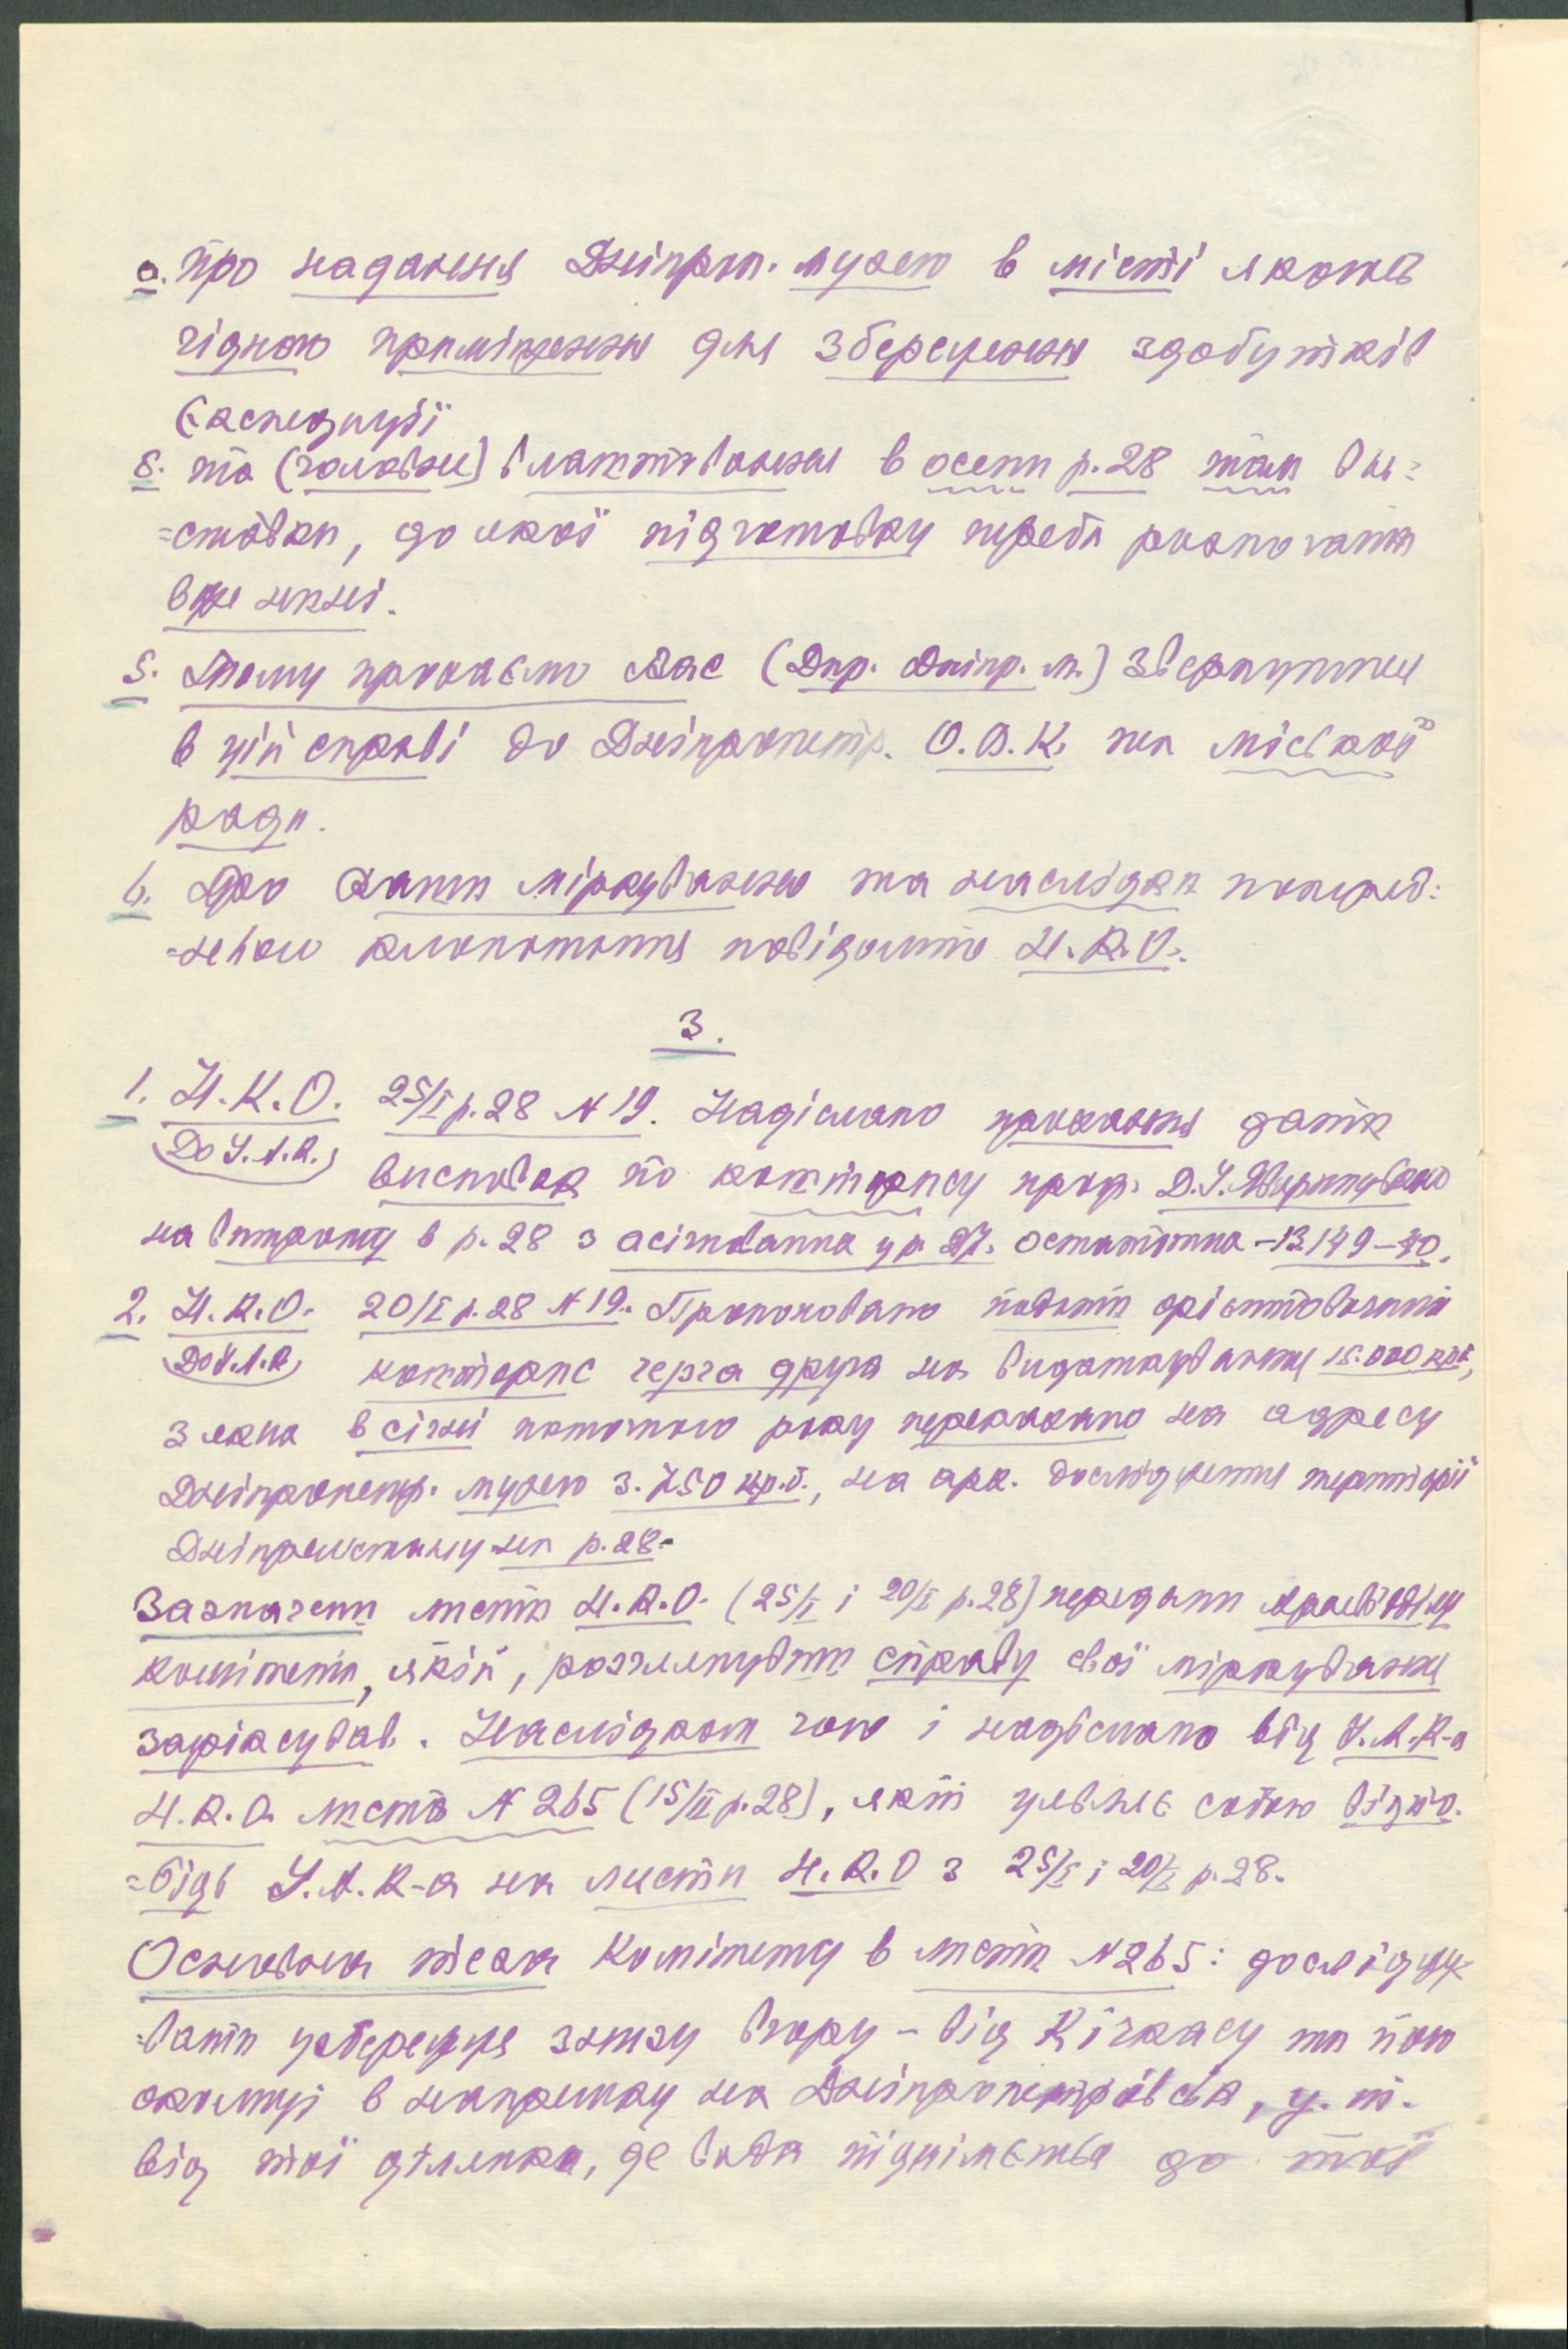 а. про надання Дніпроп. музею в місті якоїсь
гідного приміщення для збереження здобутків
Експедиції
б. та (головне) влаштування в осени р. 28 там ви-
=ставки, до якої підготовку треба розпочати
вже нині.
5. Тому прохаємо Вас (Дир. Дніпр. м.) звернутися
в цій справі до Дніпропетр. О.В.К. та міської
ради.
6. Про Ваші міркування та наслідки поперед-
=нього клопотання повідомте Н.К.О.
3.
1. Н.К.О. 25/I р. 28 N 19. Надіслано прохання дати
(До У.А.К.)
висновок по кошторису проф. Д.І. Яворницького
на витрату в р. 28 з асігнування у р. 27. остаточна – 13149–40.
2. Н.К.О. 20/I р. 28 N 19. Пропоновано подати орієнтовочний
(До У.А.К.)
кошторис черга друга на видаткування 15.000 крб,
з яких в січні поточного року переказано на адресу
Дніпропетр. музею 3.750 кр.б., на арх. дослідження території
Дніпрельстану на р. 28.
Зазначені листи Н.К.О. (25/I і 20/I р. 28) передані Археологічному
комітетові, який, розглянувши справу свої міркування
зафіксував. Наслідком чого і надіслано від У.А.К-а
Н.К.О. листа N 265 (15/II р. 28), який уявляє собою відпо-
=відь У.А.К-а на листи Н.К.О з 25/I і 20/I р. 28.
Основна теза Комітету в листі N 265: досліджу-
=вати узбережжя знизу вгору – від Кічкасу та його
околиці в напрямку на Дніпропетрівськ, ц. т.
від тої ділянки, де вода підніметься до тої